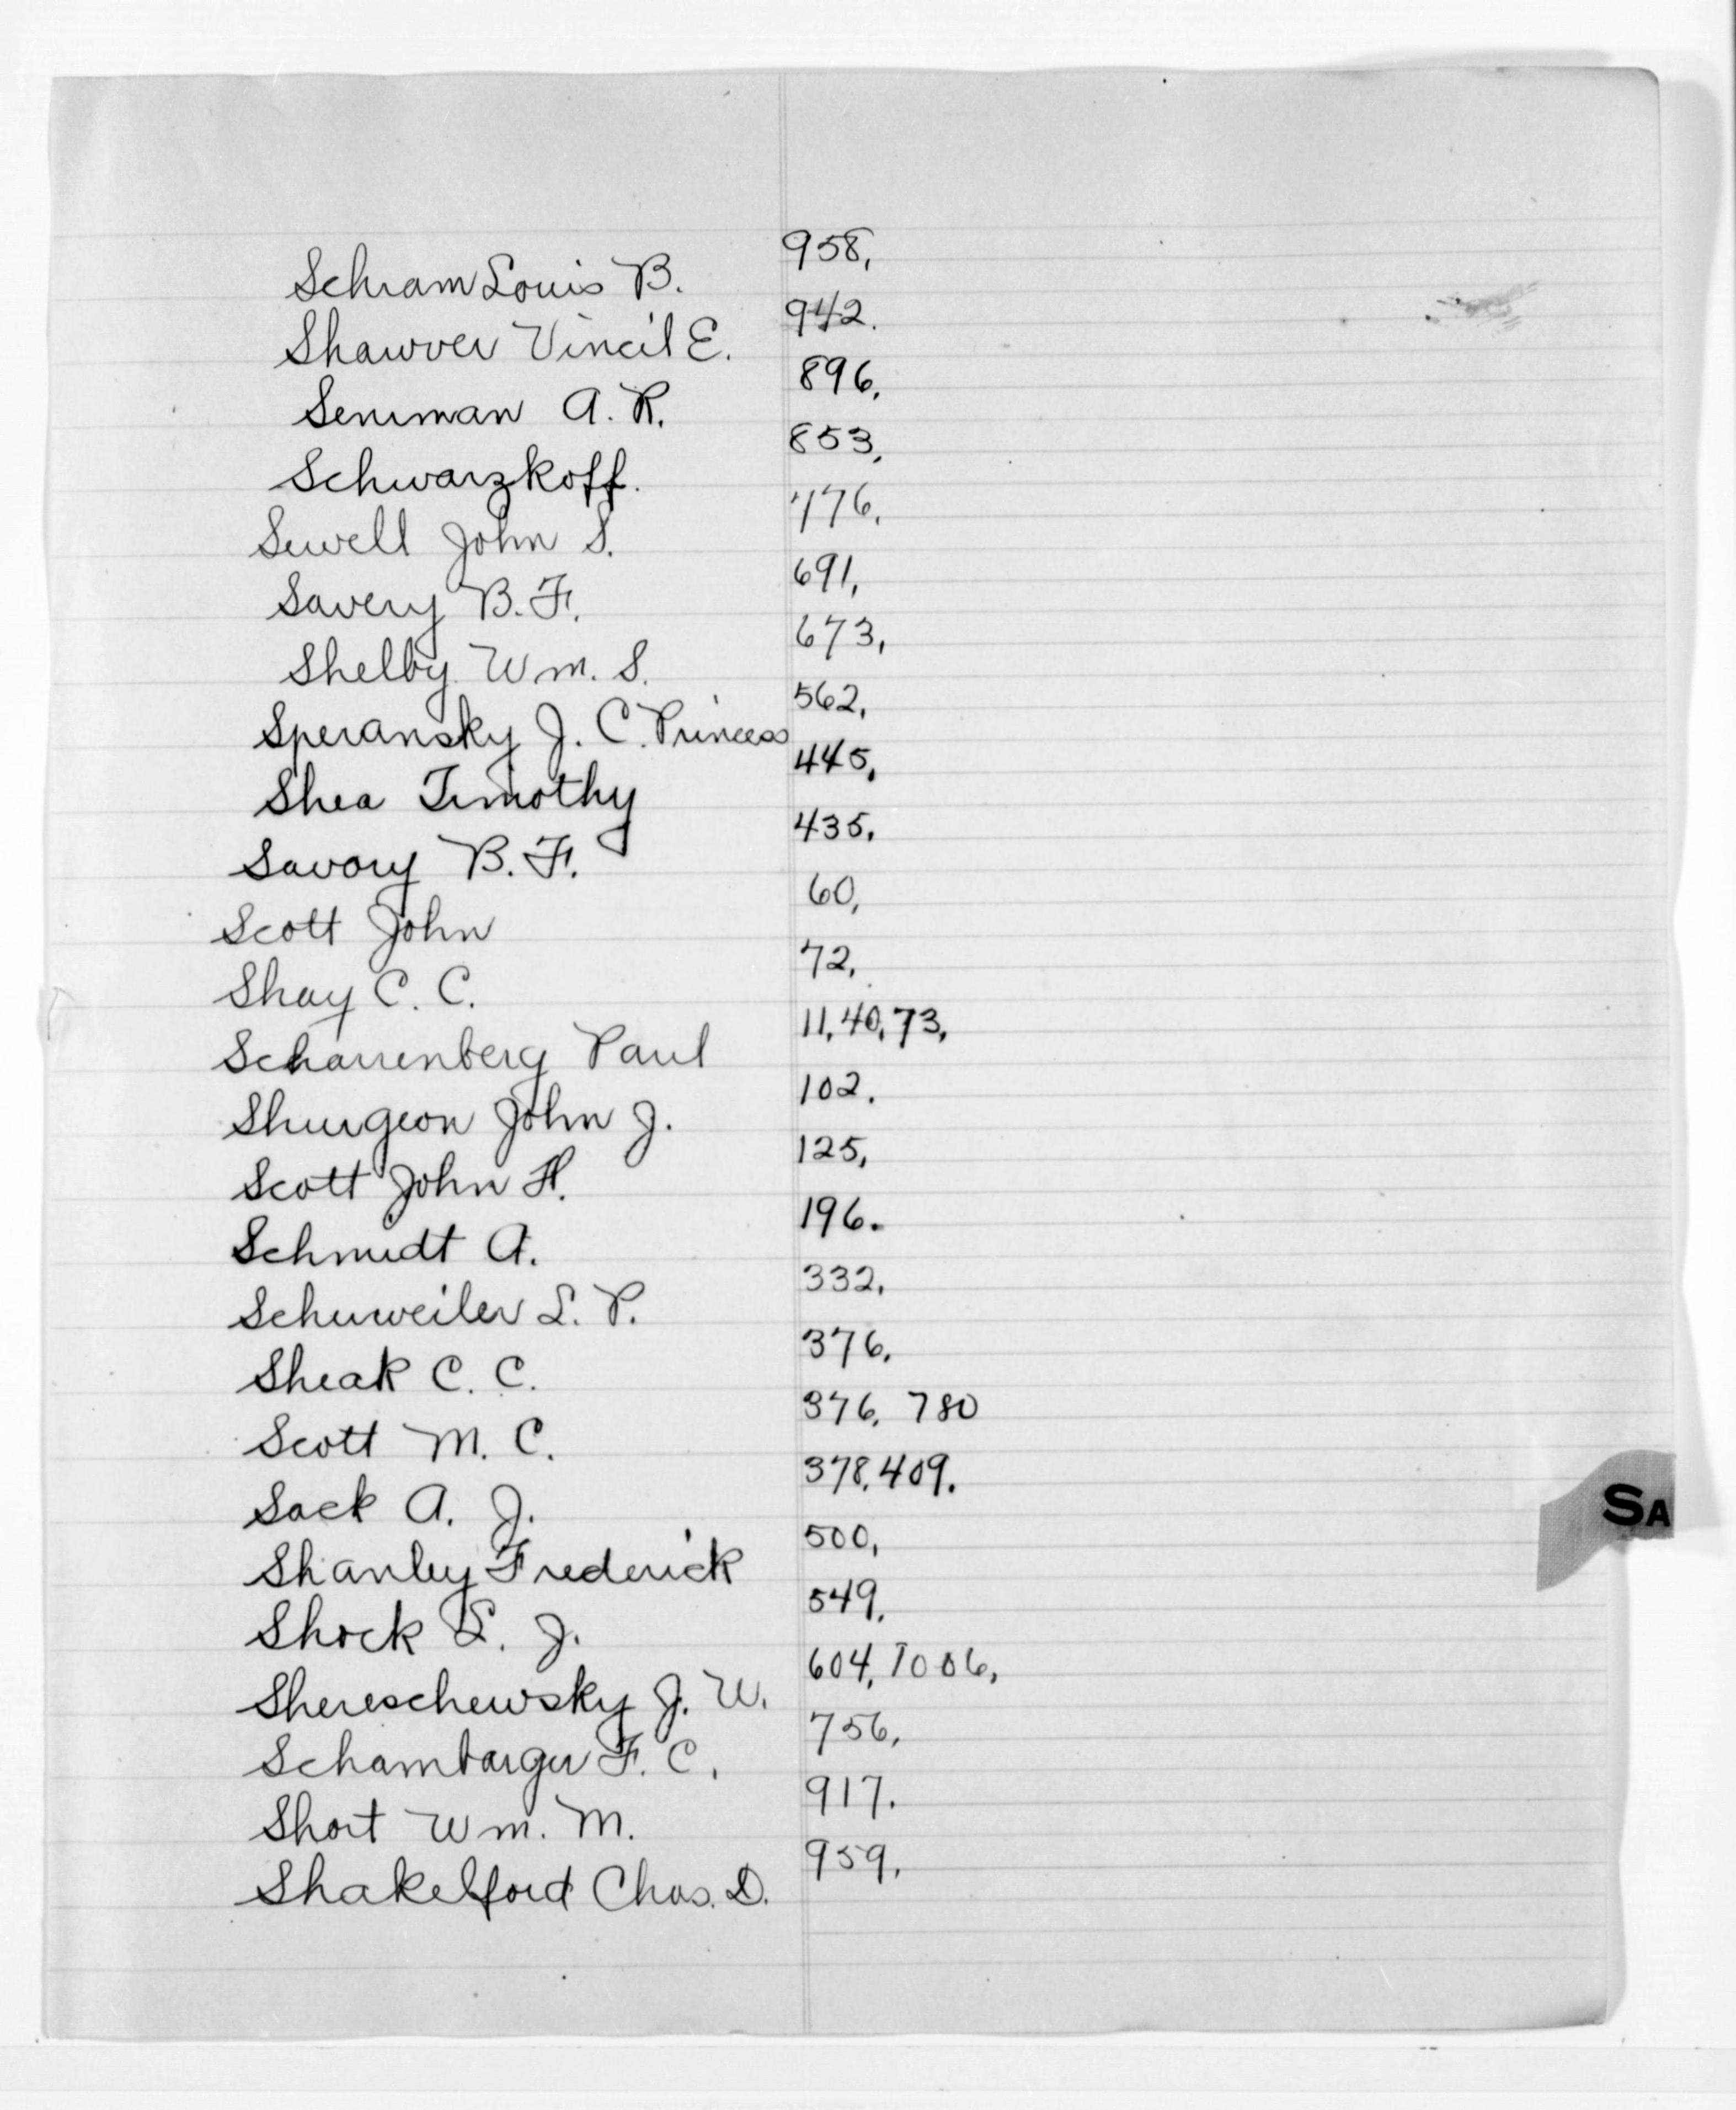 Schram Louis B. 958,
Shawver Vincil E. 942.
Senman A. R. 896,
Schwarzkoff. 853,
Sewell John S. 776,
Savery B. F. 691,
Shelby Wm. S. 673,
Speransky J. C. Princess 562,
Shea Timothy 445,
Savory B. F. 435,
Scott John 60,
Shay C. C. 72,
Scharrenberg Paul 11, 40, 73,
Shurgeon John J. 102.
Scott John H. 125,
Schmidt A. 196.
Schuweiler L. P. 332,
Sheak C. C. 376,
Scott M. C. 376, 780
Sack A. J. 378, 409.
Shanley Frederick 500,
Shock L. J. 549,
Shereschewsky J. W. 604, 1006,
Schambarger F. C. 756,
Short Wm. M. 917.
Shakelford Chas. D. 959,
SA